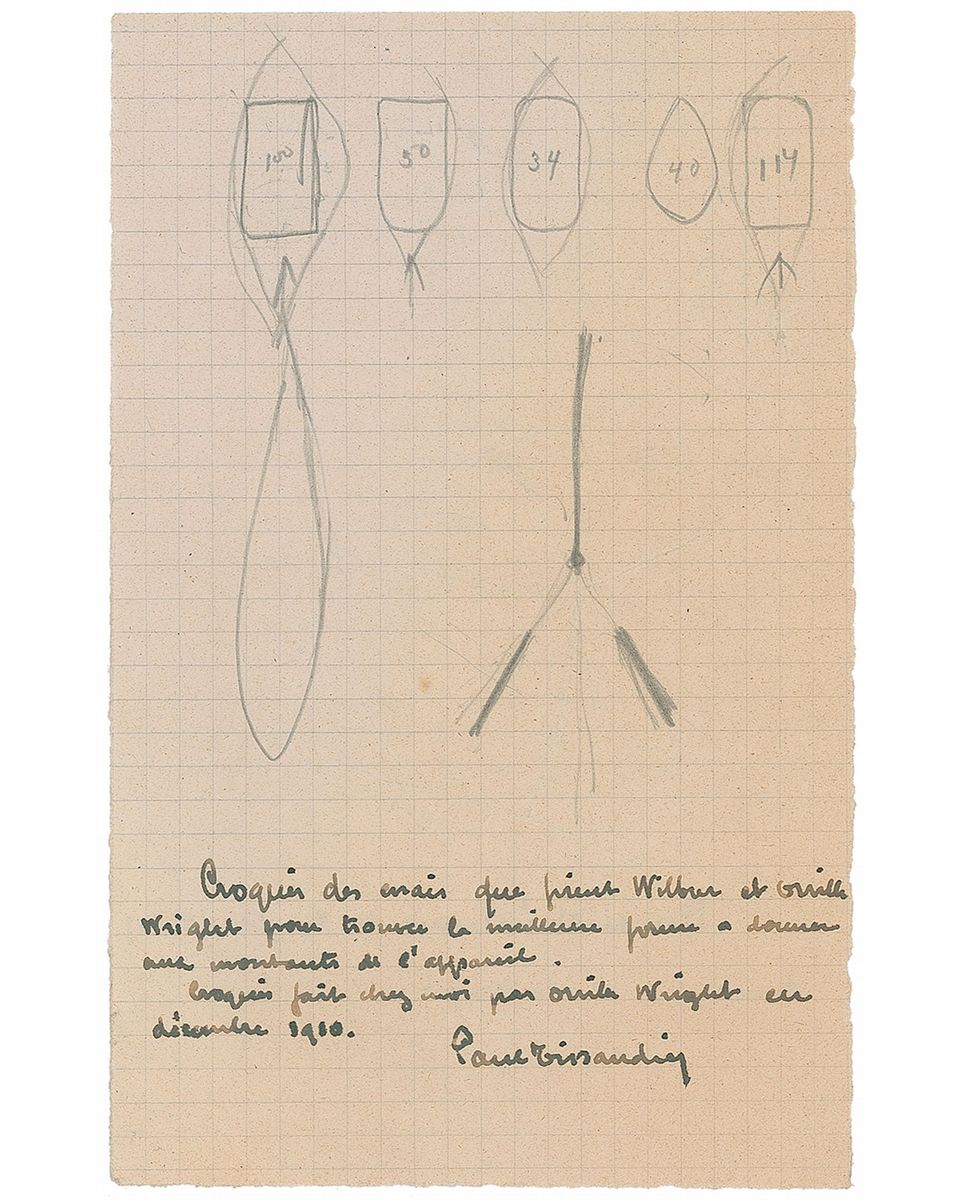 100 50 34 40 114
Croquis des essais que firent Wilbur et Orville
Wright pour trouver la meilleure forme a donner
aux montants de l'appareil.
Croquis fait chez moi par Orville Wright en
décembre 1910.
Paul Tissandier